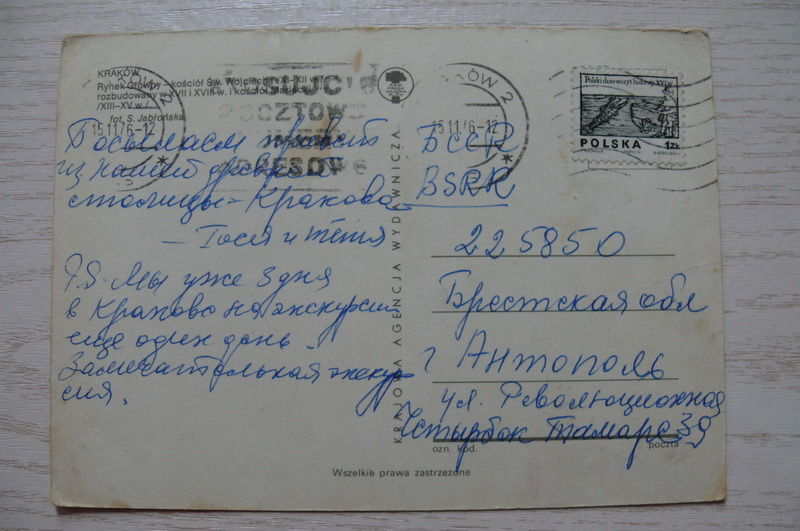 KRAKÓW
Rynek Główny - kościół Św. Wojciecha /XI-XII w.
rozbudowany w XVII i XVIII w. i kościół Mariacki
/XIII-XV w./
fot. S. Jabłońska
KRAKÓW 2
15.11.76-12
Посылаем привет
из нашей древней
столицы - Кракова
- Гося и тётя
P.S. Мы уже 3 дня
в Кракове на экскурсии
еще один день.
Замечательная экскур
сия.
KRAJOWA AGENCJA WYDAWNICZA
KRAKÓW 2
15.11.76-12
Polski drzeworyt ludowy XVI w.
POLSKA 1ZŁ
БССР
BSRR
225850
Брестская обл
г Антополь
ул. Революционная
Четырбок Тамаре 39
ozn. kod.
poczta
Wszelkie prawa zastrzeżone